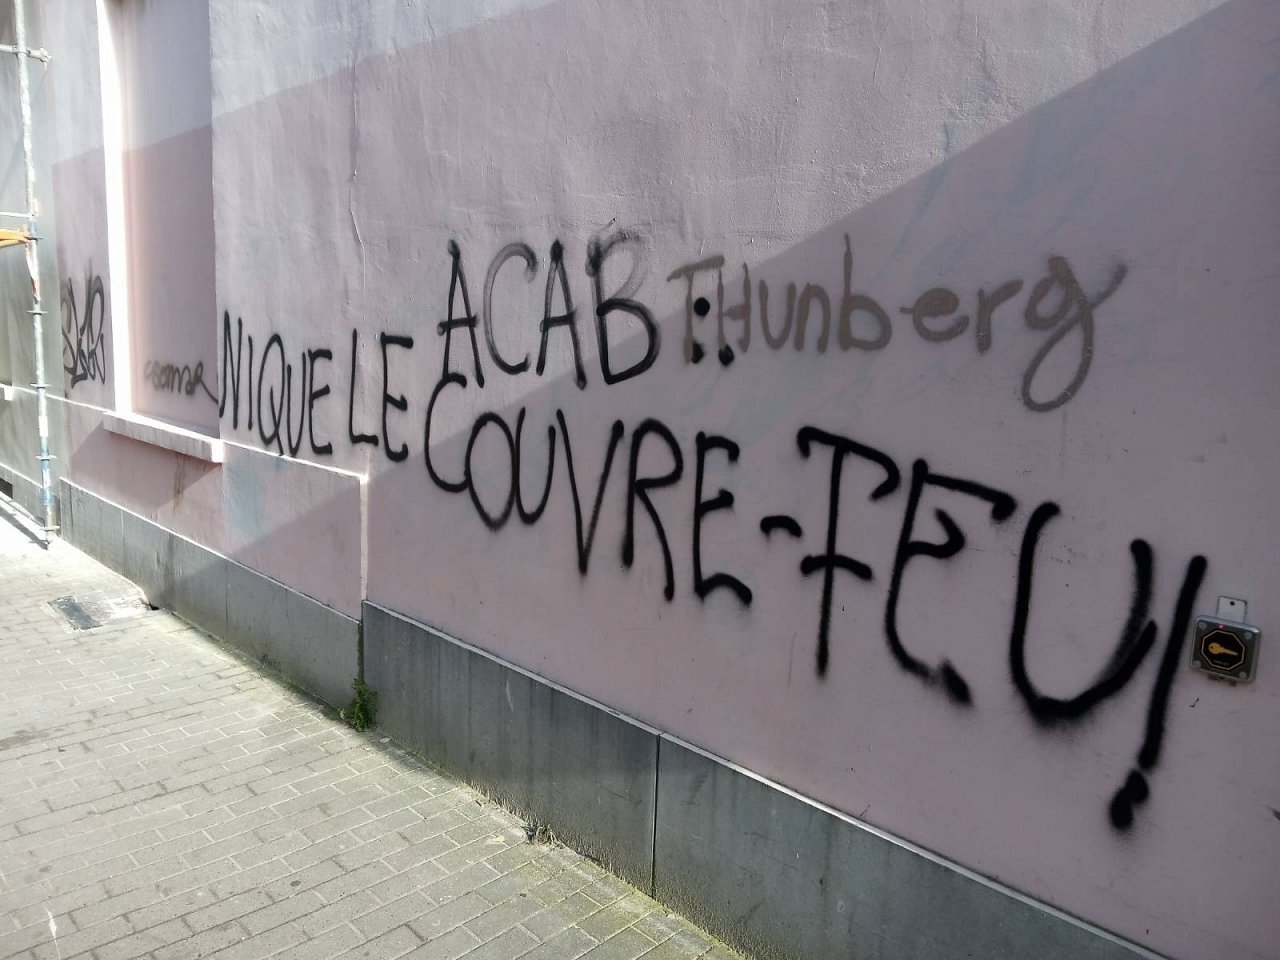 ACAB THunberg
NIQUE LE COUVRE-FEU!